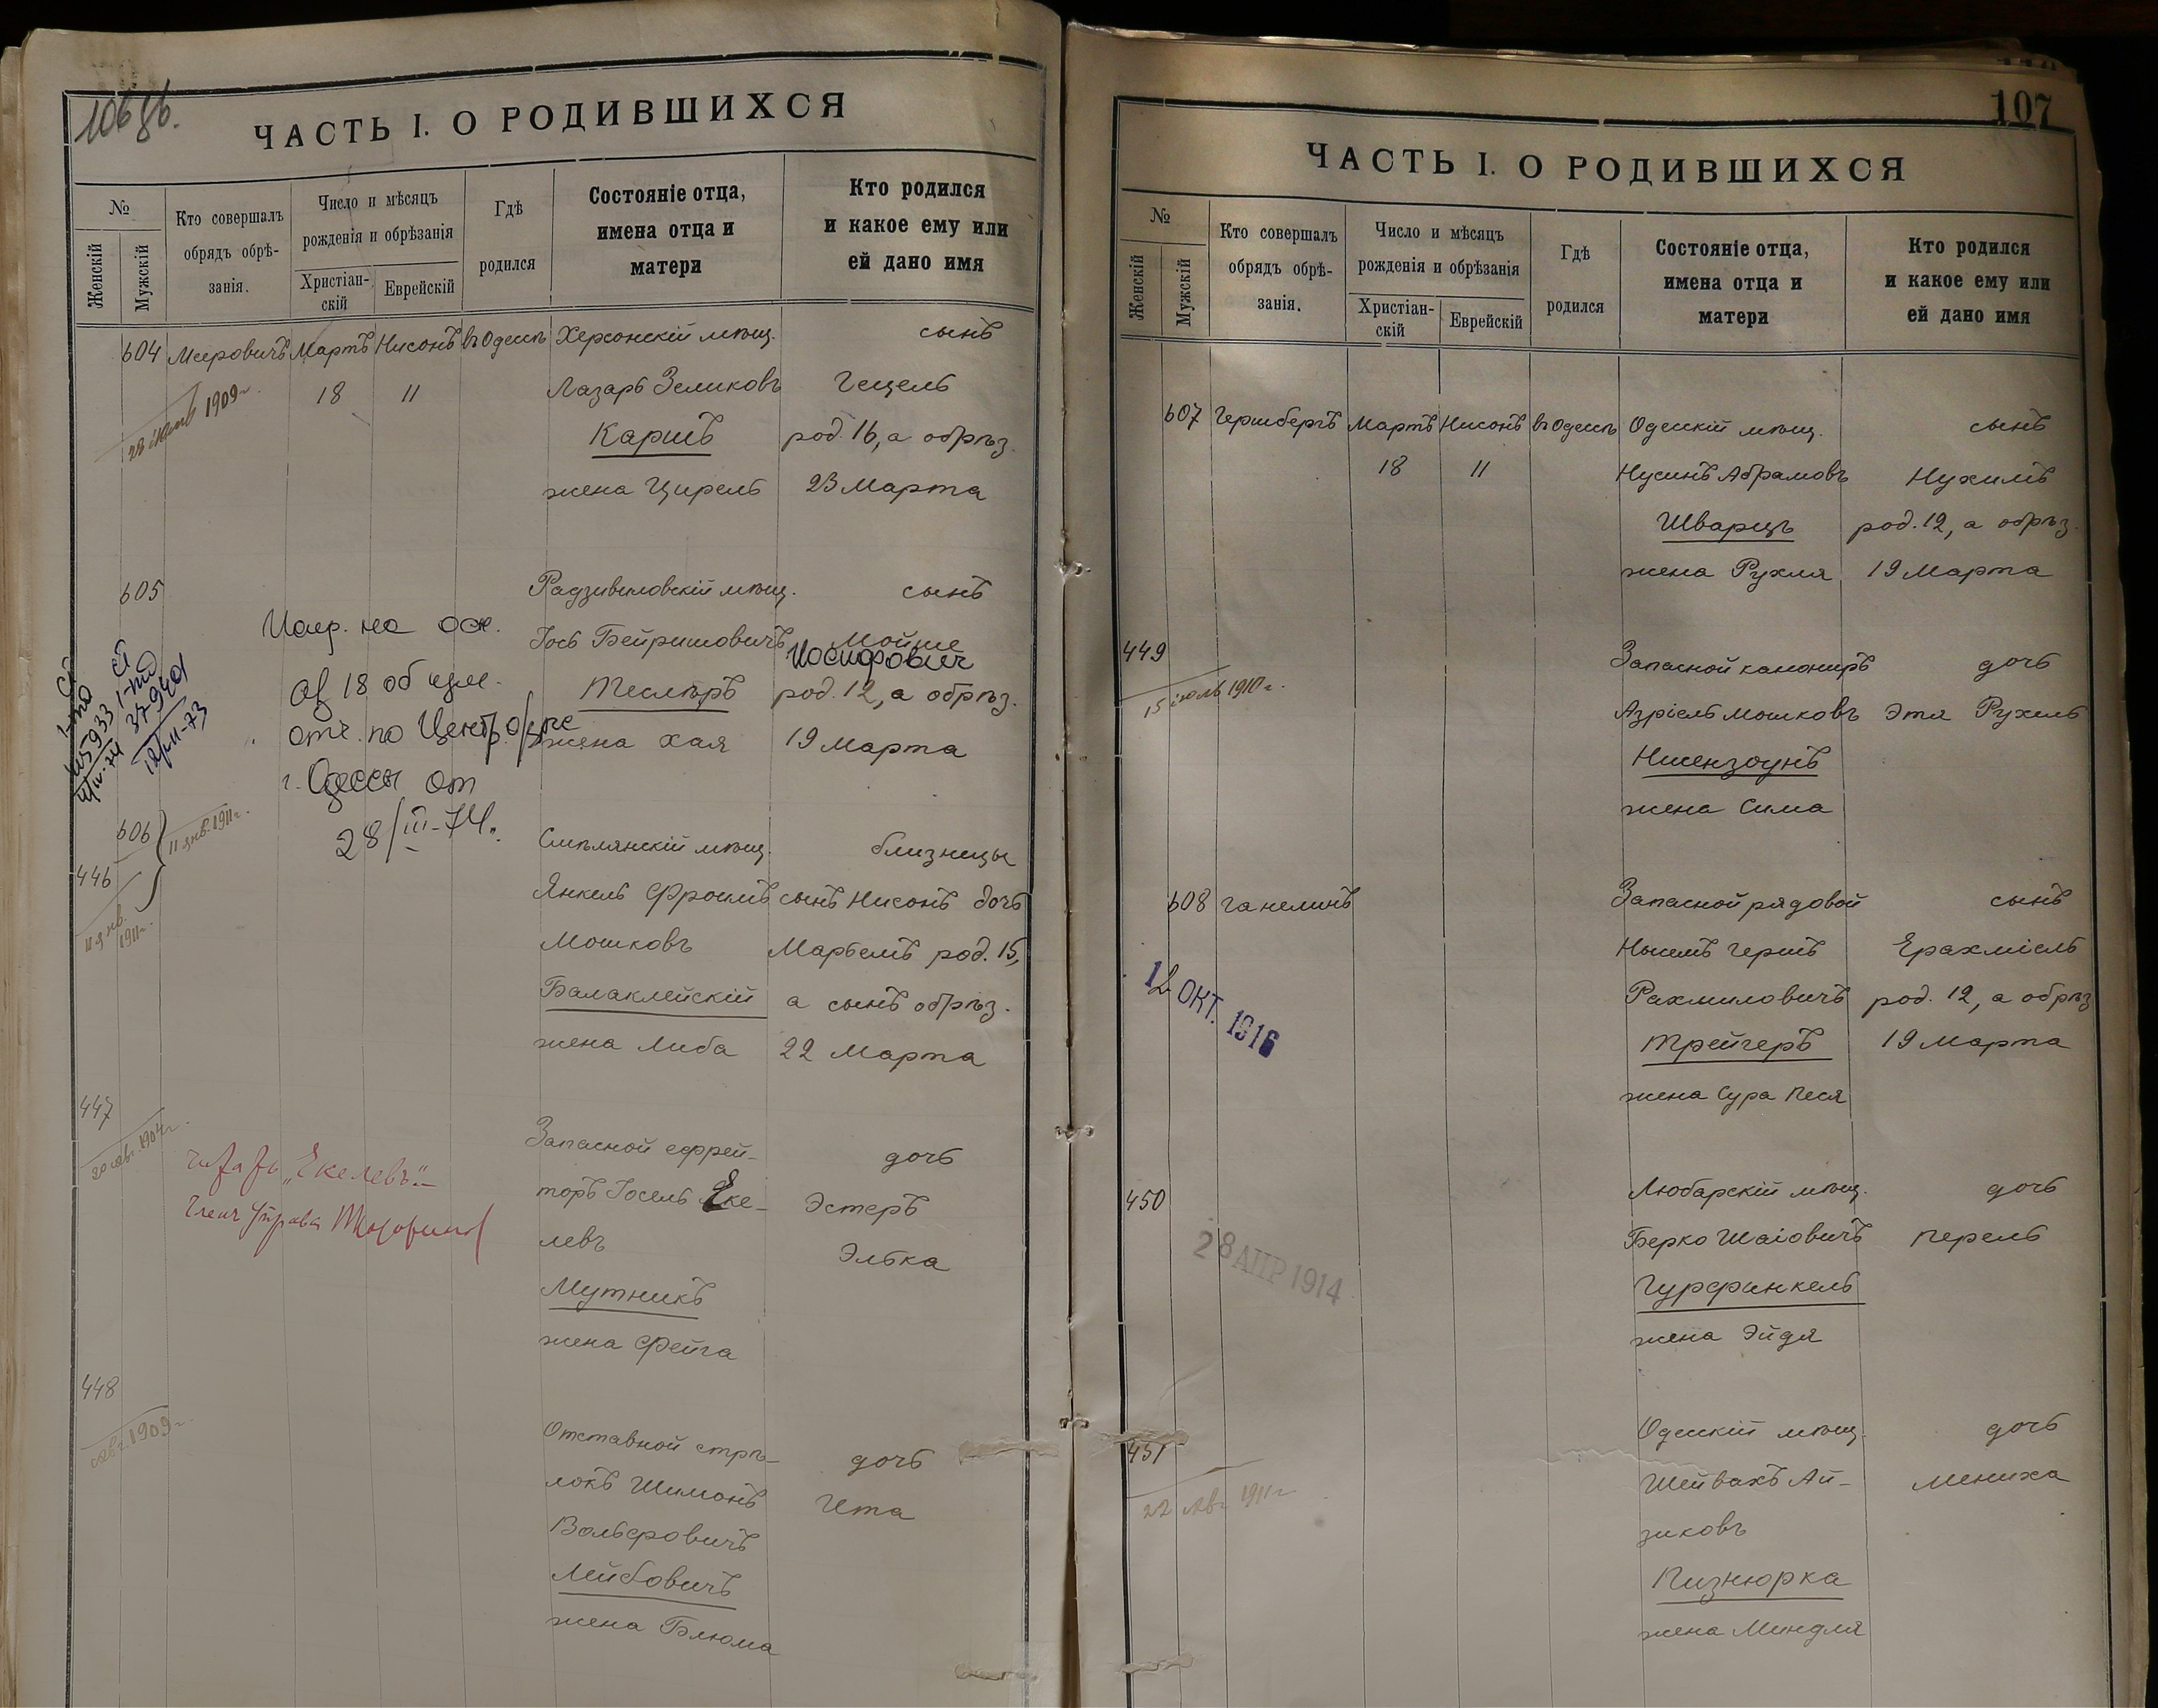 106 об.
ЧАСТЬ I. О РОДИВШИХСЯ
№
Женскій
Мужскій
Кто совершалъ
обрядъ обрѣ-
занія.
Число и мѣсяцъ
рожденія и обрѣзанія
Христіан-
скій
Еврейскій
Гдѣ
родился
Состояніе отца,
имена отца и
матери
Кто родился
и какое ему или
ей дано имя
604 Мееровичъ Мартъ Нисонъ въ Одессѣ Херсонскій мѣщ. сынъ
1909 г. 18 11 Лазарь Зеликовъ Гецель
Каршъ род. 16, а обрѣз.
жена Цирель 23 Марта
605 Радзивиловскій мѣщ. сынъ
Іось Бейришовичъ Мойше
Иосифович
Теслеръ род. 12, а обрѣз.
жена Хая 19 Марта
Испр. на осн.
от
г. Одессы от
28/III-74.
606 11 янв. 1911 г. Смѣлянскій мѣщ. близнецы
446 Янкель Фроимъ сынъ Нисонъ дочь
11 янв. 1911 г. Мошковъ Марьемъ род. 15,
Балаклейскій а сынъ обрѣз.
жена Либа 22 Марта
447 Запасной ефрей- дочь
1904 г. торъ Іосель Еке- Эстеръ
левъ Элька
Мутникъ
жена Фейга
„Екелевъ"
448 Отставной стрѣ- дочь
1909 г. локъ Шимонъ Ита
Вольфовичъ
Лейбовичъ
жена Блюма
107
ЧАСТЬ I. О РОДИВШИХСЯ
№
Женскій
Мужскій
Кто совершалъ
обрядъ обрѣ-
занія.
Число и мѣсяцъ
рожденія и обрѣзанія
Христіан-
скій
Еврейскій
Гдѣ
родился
Состояніе отца,
имена отца и
матери
Кто родился
и какое ему или
ей дано имя
607 Гершбергъ Мартъ Нисонъ въ Одессѣ Одесскій мѣщ. сынъ
18 11 Нусинъ Абрамовъ Нухимъ
Шварцъ род. 12, а обрѣз.
жена Рухля 19 Марта
449 Запасной канониръ дочь
15 іюль 1910 г. Азріель Мошковъ Этя Рухель
Нисензоунъ
жена Сима
608 Ганелинъ Запасной рядовой сынъ
12 ОКТ. 1916 Гершъ Ерахміель
Рахмиловичъ род. 12, а обрѣз
Трейгеръ 19 Марта
жена Сура Песя
450 Любарскій мѣщ. дочь
28 АПР 1914 Берко Шаіовичъ Перель
Гурфинкель
жена Эйдя
451 Одесскій мѣщ. дочь
22 авг 1911 г Шейвахъ Ай- Мениха
зиковъ
Пизнюрка
жена Миндля